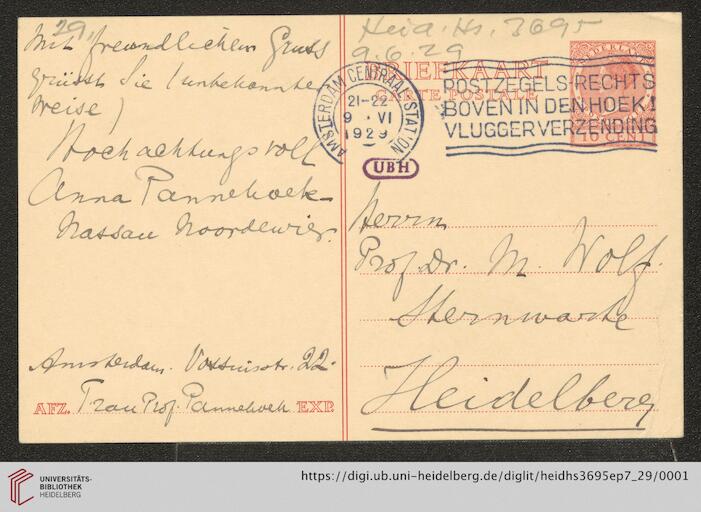 29,
Mit freundlichem Gruss
grüsst Sie (unbekannter
weise)
Hochachtungsvoll
Anna Pannekoek-
Nassau Noordewier.
Amsterdam. Vossiusstr. 22.
AFZ. Frau Prof. Pannekoek EXP.
Heid. Hs. 3695
9.6.29
BRIEFKAART
CARTE POSTALE
NEDERLAND
10 CENT
AMSTERDAM CENTRAAL STATION
21-22
9 . VI
1929
POSTZEGELS RECHTS
BOVEN IN DEN HOEK!
VLUGGER VERZENDING
UBH
Herrn
Prof. Dr. M. Wolf.
Sternwarte
Heidelberg
UNIVERSITÄTS-
BIBLIOTHEK
HEIDELBERG
https://digi.ub.uni-heidelberg.de/diglit/heidhs3695ep7_29/0001